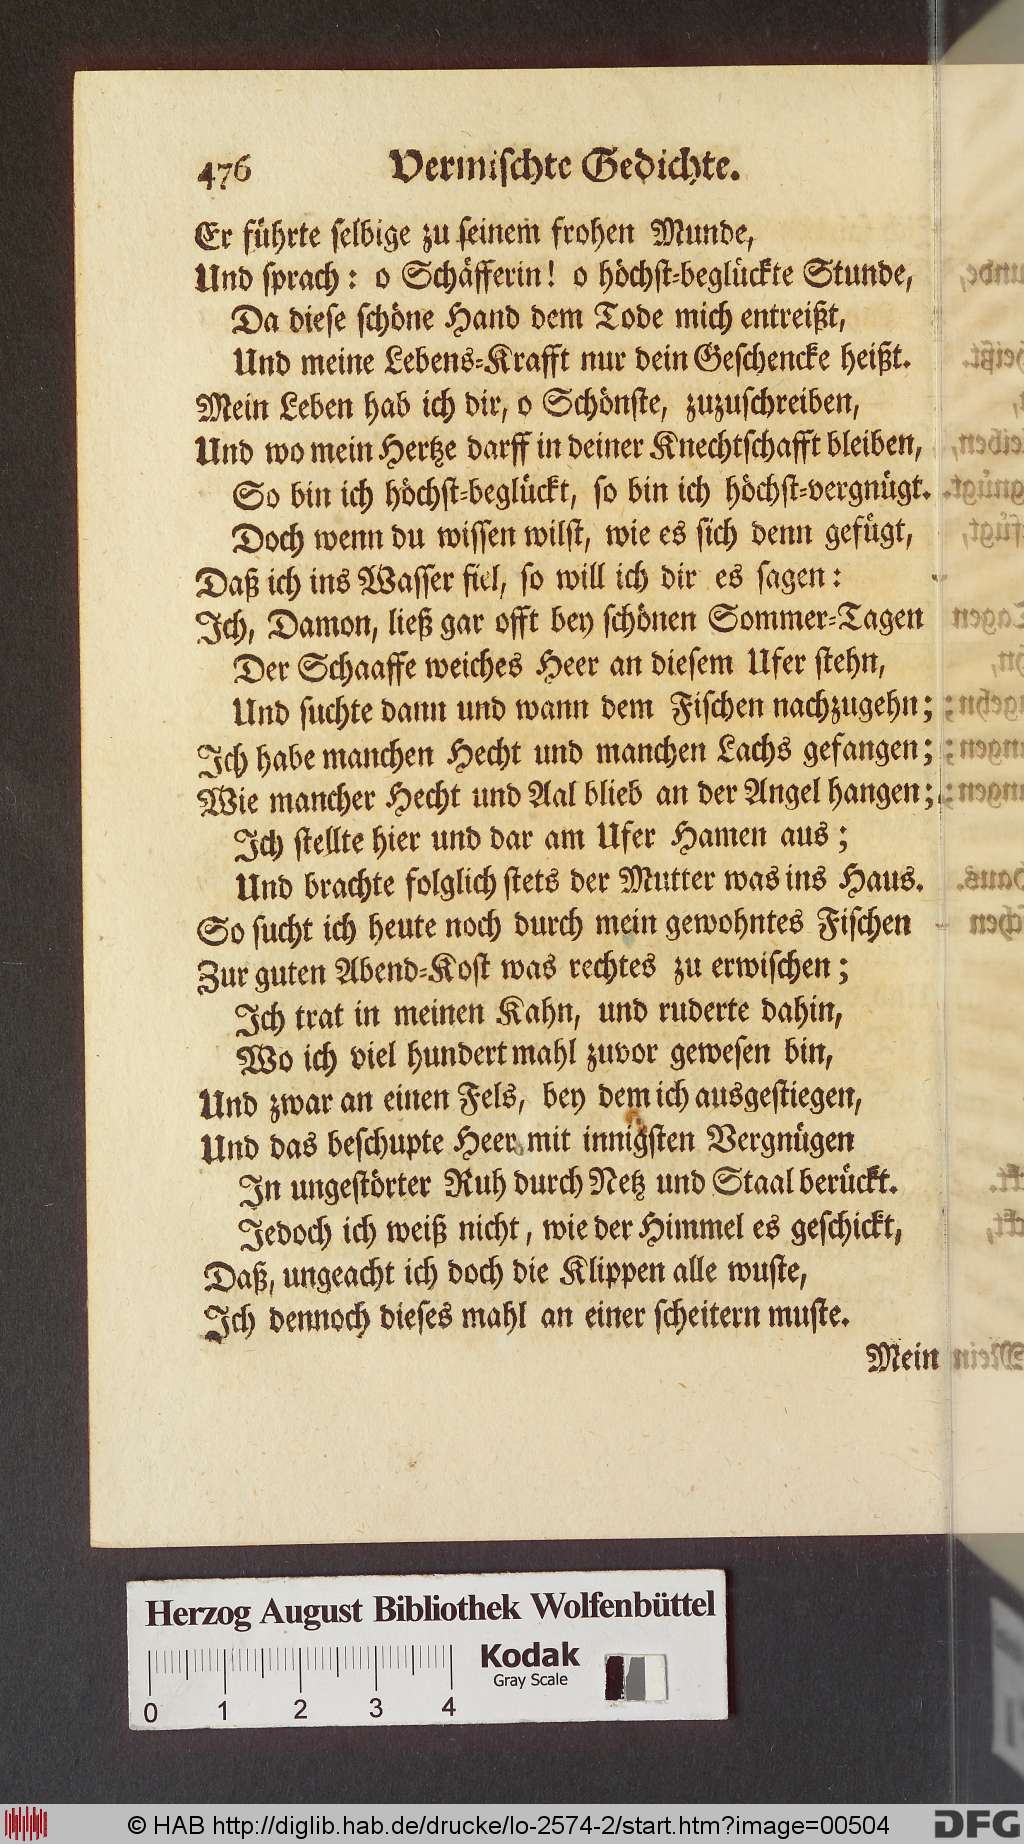 476 Vermischte Gedichte.
Er führte selbige zu seinem frohen Munde,
Und sprach: o Schäfferin! o höchst-beglückte Stunde,
Da diese schöne Hand dem Tode mich entreißt,
Und meine Lebens-Krafft nur dein Geschencke heißt.
Mein Leben hab ich dir, o Schönste, zuzuschreiben,
Und wo mein Hertze darff in deiner Knechtschafft bleiben,
So bin ich höchst-beglückt, so bin ich höchst-vergnügt.
Doch wenn du wissen wilst, wie es sich denn gefügt,
Daß ich ins Wasser fiel, so will ich dir es sagen:
Ich, Damon, ließ gar offt bey schönen Sommer-Tagen
Der Schaaffe weiches Heer an diesem Ufer stehn,
Und suchte dann und wann dem Fischen nachzugehn;
Ich habe manchen Hecht und manchen Lachs gefangen;
Wie mancher Hecht und Aal blieb an der Angel hangen;
Ich stellte hier und dar am Ufer Hamen aus;
Und brachte folglich stets der Mutter was ins Haus.
So sucht ich heute noch durch mein gewohntes Fischen
Zur guten Abend-Kost was rechtes zu erwischen;
Ich trat in meinen Kahn, und ruderte dahin,
Wo ich viel hundertmahl zuvor gewesen bin,
Und zwar an einen Fels, bey dem ich ausgestiegen,
Und das beschupte Heer mit innigsten Vergnügen
In ungestörter Ruh durch Netz und Staal berückt.
Jedoch ich weiß nicht, wie der Himmel es geschickt,
Daß, ungeacht ich doch die Klippen alle wuste,
Ich dennoch dieses mahl an einer scheitern muste.
Mein
Herzog August Bibliothek Wolfenbüttel
Kodak
Gray Scale
0 1 2 3 4
© HAB http://diglib.hab.de/drucke/lo-2574-2/start.htm?image=00504 DFG